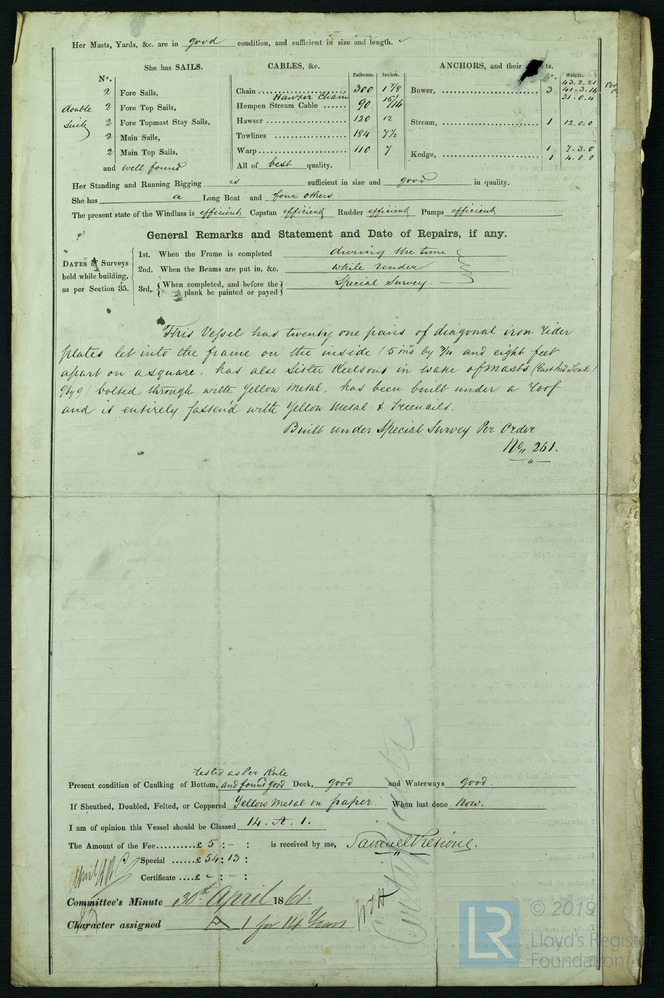 Her Masts, Yards, &c. are in good condition, and sufficient in size and length.
She has SAILS.
Nº.
double Suits
2 Fore Sails,
2 Fore Top Sails,
2 Fore Topmast Stay Sails,
2 Main Sails,
2 Main Top Sails,
and well found
CABLES, &c.
Fathoms. Inches.
Chain 300 1 7/8
Hawser Chain
Hempen Stream Cable 90
Hawser 120 12
Towlines 184 7½
Warp 110 7
All of best quality.
ANCHORS, and their
Nº. Weight.
Bower, 3 43.2.21
41.3.16
31.0.4
Stream, 1 12.0.0
Kedge, 1 7.3.0
1 4.0.0
Her Standing and Running Rigging is sufficient in size and good in quality.
She has a Long Boat and four others
The present state of the Windlass is efficient Capstan efficient Rudder efficient Pumps efficient
General Remarks and Statement and Date of Repairs, if any.
DATES of Surveys held while building, as per Section 35.
1st. When the Frame is completed during the time
2nd. When the Beams are put in, &c. while under
3rd. When completed, and before the plank be painted or payed Special Survey.
This Vessel has twenty one pairs of diagonal iron rider
plates let into the frame on the inside 5 ins by ¾ and eight feet
apart on a square. has also Sister Keelsons in wake of Masts
bolted through with Yellow Metal. has been built under a roof
and is entirely fasten'd with Yellow Metal & Treenails.
Built under Special Survey Per Order
No. 261.
tested as Per Rule
Present condition of Caulking of Bottom, and found good Deck, good and Waterways good
If Sheathed, Doubled, Felted, or Coppered Yellow Metal on paper. When last done Now.
I am of opinion this Vessel should be Classed 14. A. 1.
The Amount of the Fee £ 5 : - : is received by me, Samuel
Special £ 54 : 13 :
Certificate £ - : - :
Committee's Minute 30th April 1861.
Character assigned A 1 for 14 Years
LR © 2019
Lloyd's Register
Foundation